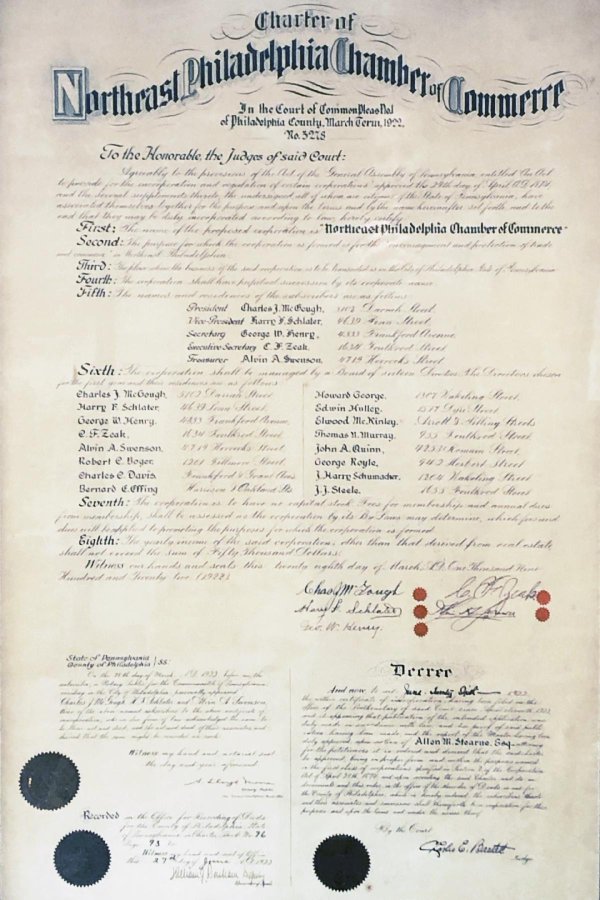 Charter of
Northeast Philadelphia Chamber of Commerce
In the Court of Common Pleas No1
of Philadelphia County, March Term, 1922.
No. 5278
To the Honorable, the Judges of said Court:
Agreeably to the provisions of the Act of the General Assembly of Pennsylvania, entitled "An Act
to provide for the incorporation and regulation of certain corporations" approved the 29th day of April A.D. 1874,
and the several supplements thereto, the undersigned, all of whom are citizens of the State of Pennsylvania, have
associated themselves together for the purpose and upon the terms and by the name hereinafter set forth, and to the
end that they may be duly incorporated according to law, hereby certify
First: The name of the proposed corporation is "Northeast Philadelphia Chamber of Commerce"
Second: The purpose for which the corporation is formed is for the encouragement and protection of trade
and commerce in Northeast Philadelphia.
Third: The place where the business of the said corporation is to be transacted is in the City of Philadelphia State of Pennsylvania
Fourth: The corporation shall have perpetual succession by its corporate name
Fifth: The names and residences of the subscribers are as follows
President Charles J. McGough, 5102 Darrah Street.
Vice-President Harry F. Schlater, 4639 Penn Street
Secretary George W. Henry, 4833 Frankford Avenue,
Executive Secretary C. F. Zeak, 1634 Foulkrod Street
Treasurer Alvin A. Swenson, 4719 Horrocks Street.
Sixth: The corporation shall be managed by a Board of sixteen Directors. The Directors chosen
for the first year and their residences are as follows
Charles J. McGough, 5102 Darrah Street
Harry F. Schlater, 4639 Penn Street,
George W. Henry, 4833 Frankford Avenue,
C. F. Zeak, 1634 Foulkrod Street,
Alvin A. Swenson, 4719 Horrocks Street,
Robert C. Boger, Fillmore Street
Charles C. Davis Frankford &
Bernard C. Effing Harrison & Oakland Sts
Howard George, 1507 Wakeling Street,
Edwin Hulley, Dyre Street
Elwood McKinley, Streets
Thomas N. Murray, 933 Foulkrod Street
John A. Quinn, 4253 Romain Street.
George Royle, 942 Herbert Street
J. Harry Schumacher, 1204 Wakeling Street
J.J. Steele, 1655 Foulkrod Street
Seventh: The corporation is to have no capital stock. Fees for membership and annual dues
from membership, shall be assessed as the corporation by its By Laws may determine, which fees and
dues will be applied to promoting the purposes for which the corporation is formed.
Eighth: The yearly income of the said corporation, other than that derived from real estate
shall not exceed the Sum of Fifty Thousand Dollars.
Witness our hands and seals this twenty eighth day of March A.D. One Thousand Nine
Hundred and Twenty two (1922)
Chas J McGough C. F. Zeak
Harry F. Schlater
Geo. W. Henry
State of Pennsylvania
County of Philadelphia SS:
On the day of March A.D. 1922 before me, the
Notary Public for the Commonwealth of Pennsylvania,
residing in the City of Philadelphia, personally appeared
Charles J. McGough, H. F. Schlater and Alvin A. Swenson,
Witness my hand and notarial seal
the day and year aforesaid.
Notary Public
Recorded in the Office for Recording of Deeds
for the County of Philadelphia, State
of Pennsylvania in Charter Book No 76
Page 93 &c
Witness my hand and seal of Office
this 27th day of June 1922
Decree
And now to wit June 1922
the within certificate of incorporation having been filed in the
Allen M. Stearne, Esq.
By the Court
Judge